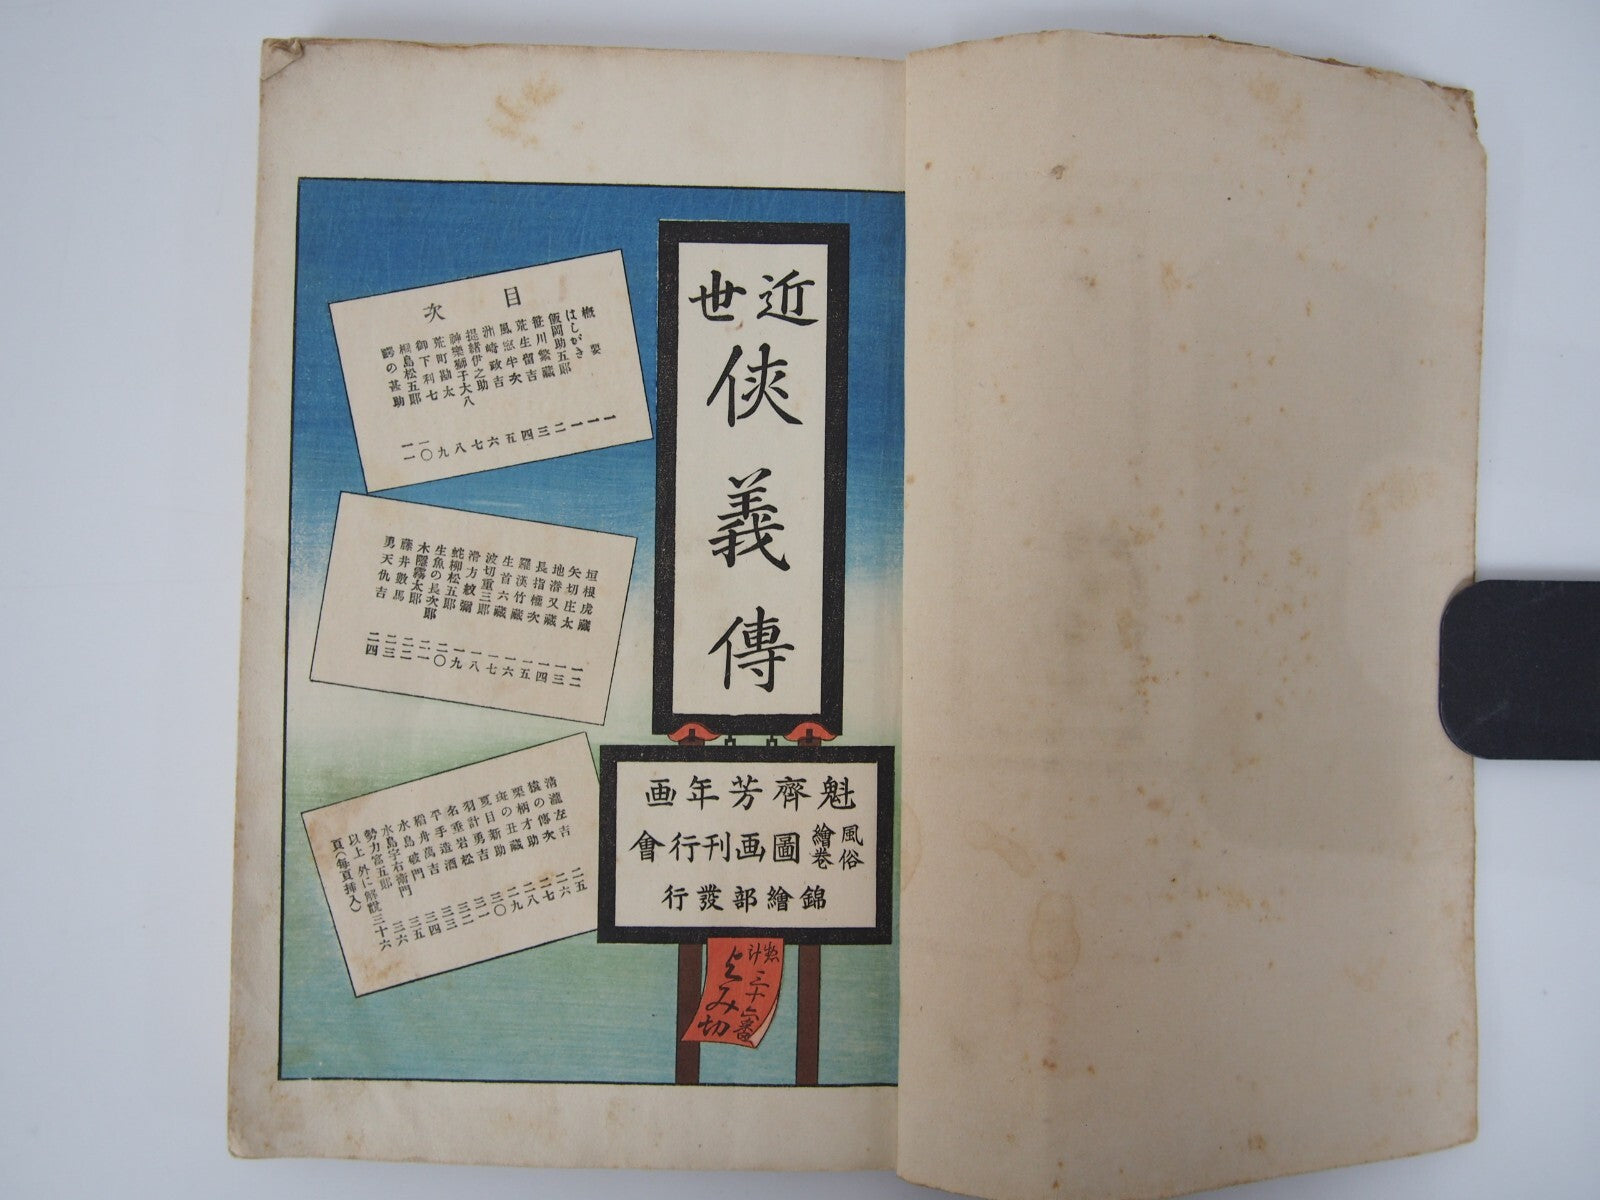 近世
侠義傳
魁齊芳年画
風俗繪卷圖画刊行會
錦繪部發行
三十六番
よみ切
目次
概要 一
はしがき 一
飯岡助五郎 一
笹川繁藏 二
荒生留吉 三
風窓半次 四
洲崎政吉 五
提緒伊之助 六
神樂獅子大八 七
荒町勘太 八
御下利七 九
桐島松五郎 一〇
の甚助 一一
垣根虎藏 一二
矢切庄太 一三
地潜又藏 一四
長指權次 一五
羅漢竹藏 一六
生首六藏 一七
波切重三郎 一八
滑方紋彌 一九
蛇柳松五郎 二〇
生魚の長次郎 二一
木隱霧太郎 二二
藤井數馬 二三
勇天仇吉 二四
清瀧左吉 二五
猿の傳次 二六
栗柄才助 二七
斑の丑藏 二八
夏目新助 二九
羽計勇吉 三〇
名垂岩松 三一
平手造酒 三二
稻舟萬吉 三三
水島破門 三四
水島宇右衛門 三五
勢力富五郎 三六
以上外に解說三十六
頁(每頁挿入)